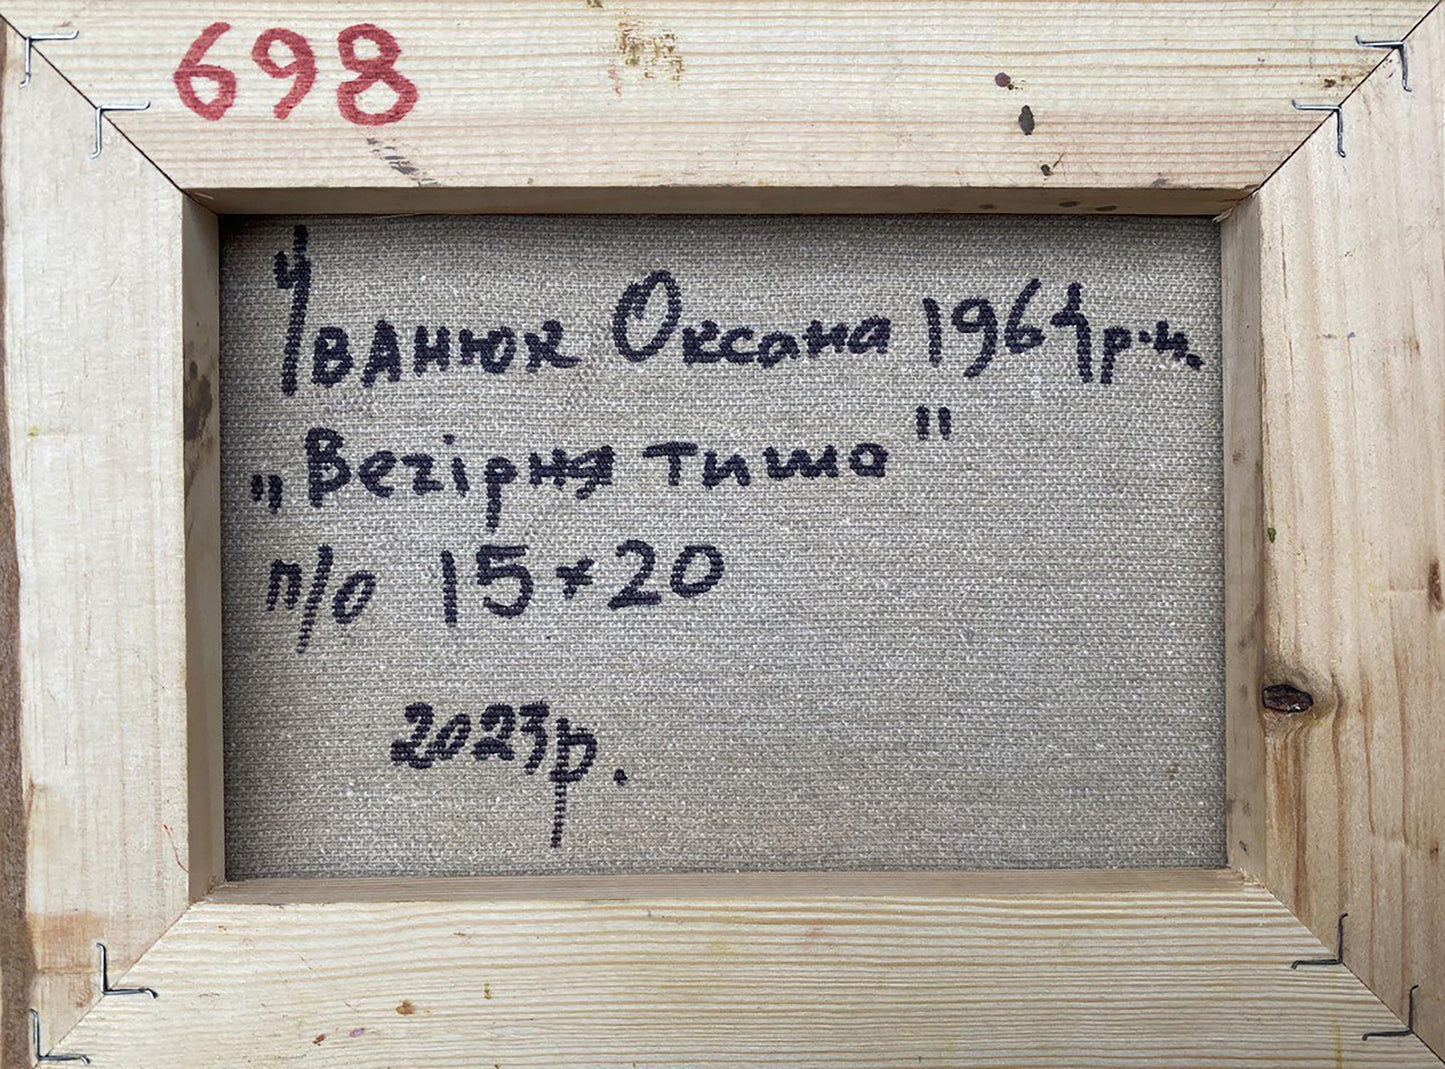 698
Іванюк Оксана 1964 р.н.
„Вечірня тиша"
п/о 15×20
2023р.